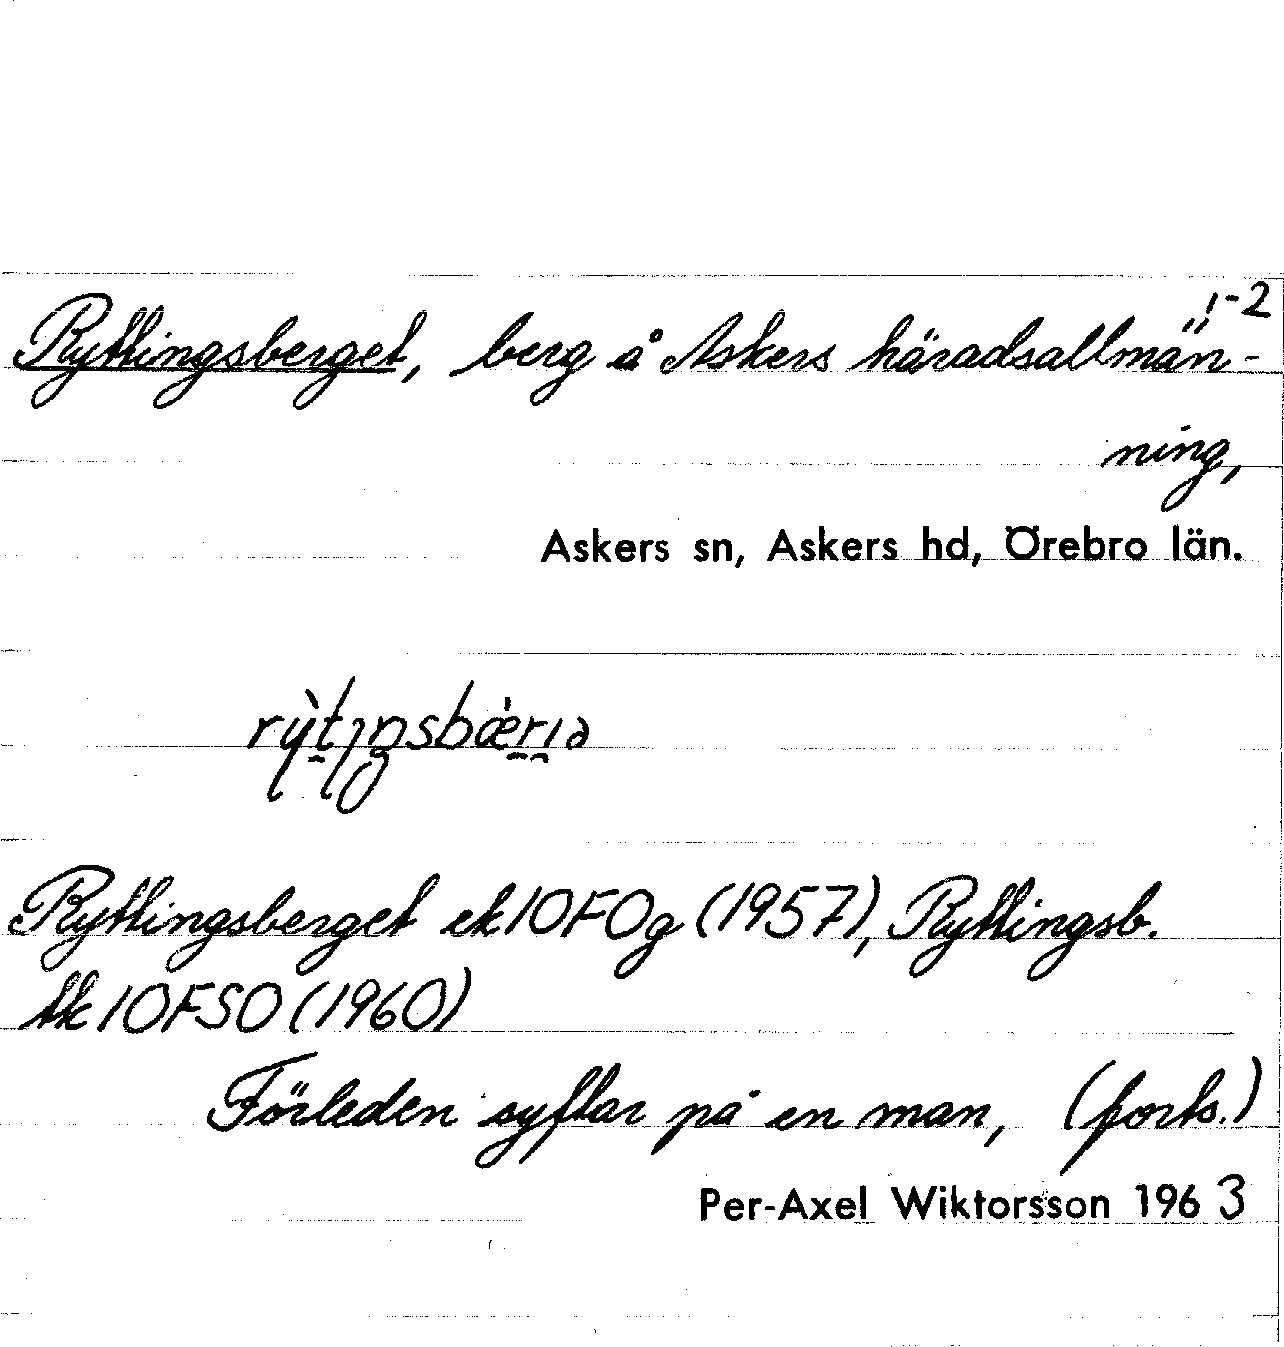 1-2
Ryttingsberget, berg å Askers häradsallmän-
ning,
Askers sn, Askers hd, Örebro län.
Ryttingsberget ek 10F0g (1957), Ryttingsb.
tk 10FSO (1960)
Förleden syftar på en man, (forts.)
Per-Axel Wiktorsson 1963